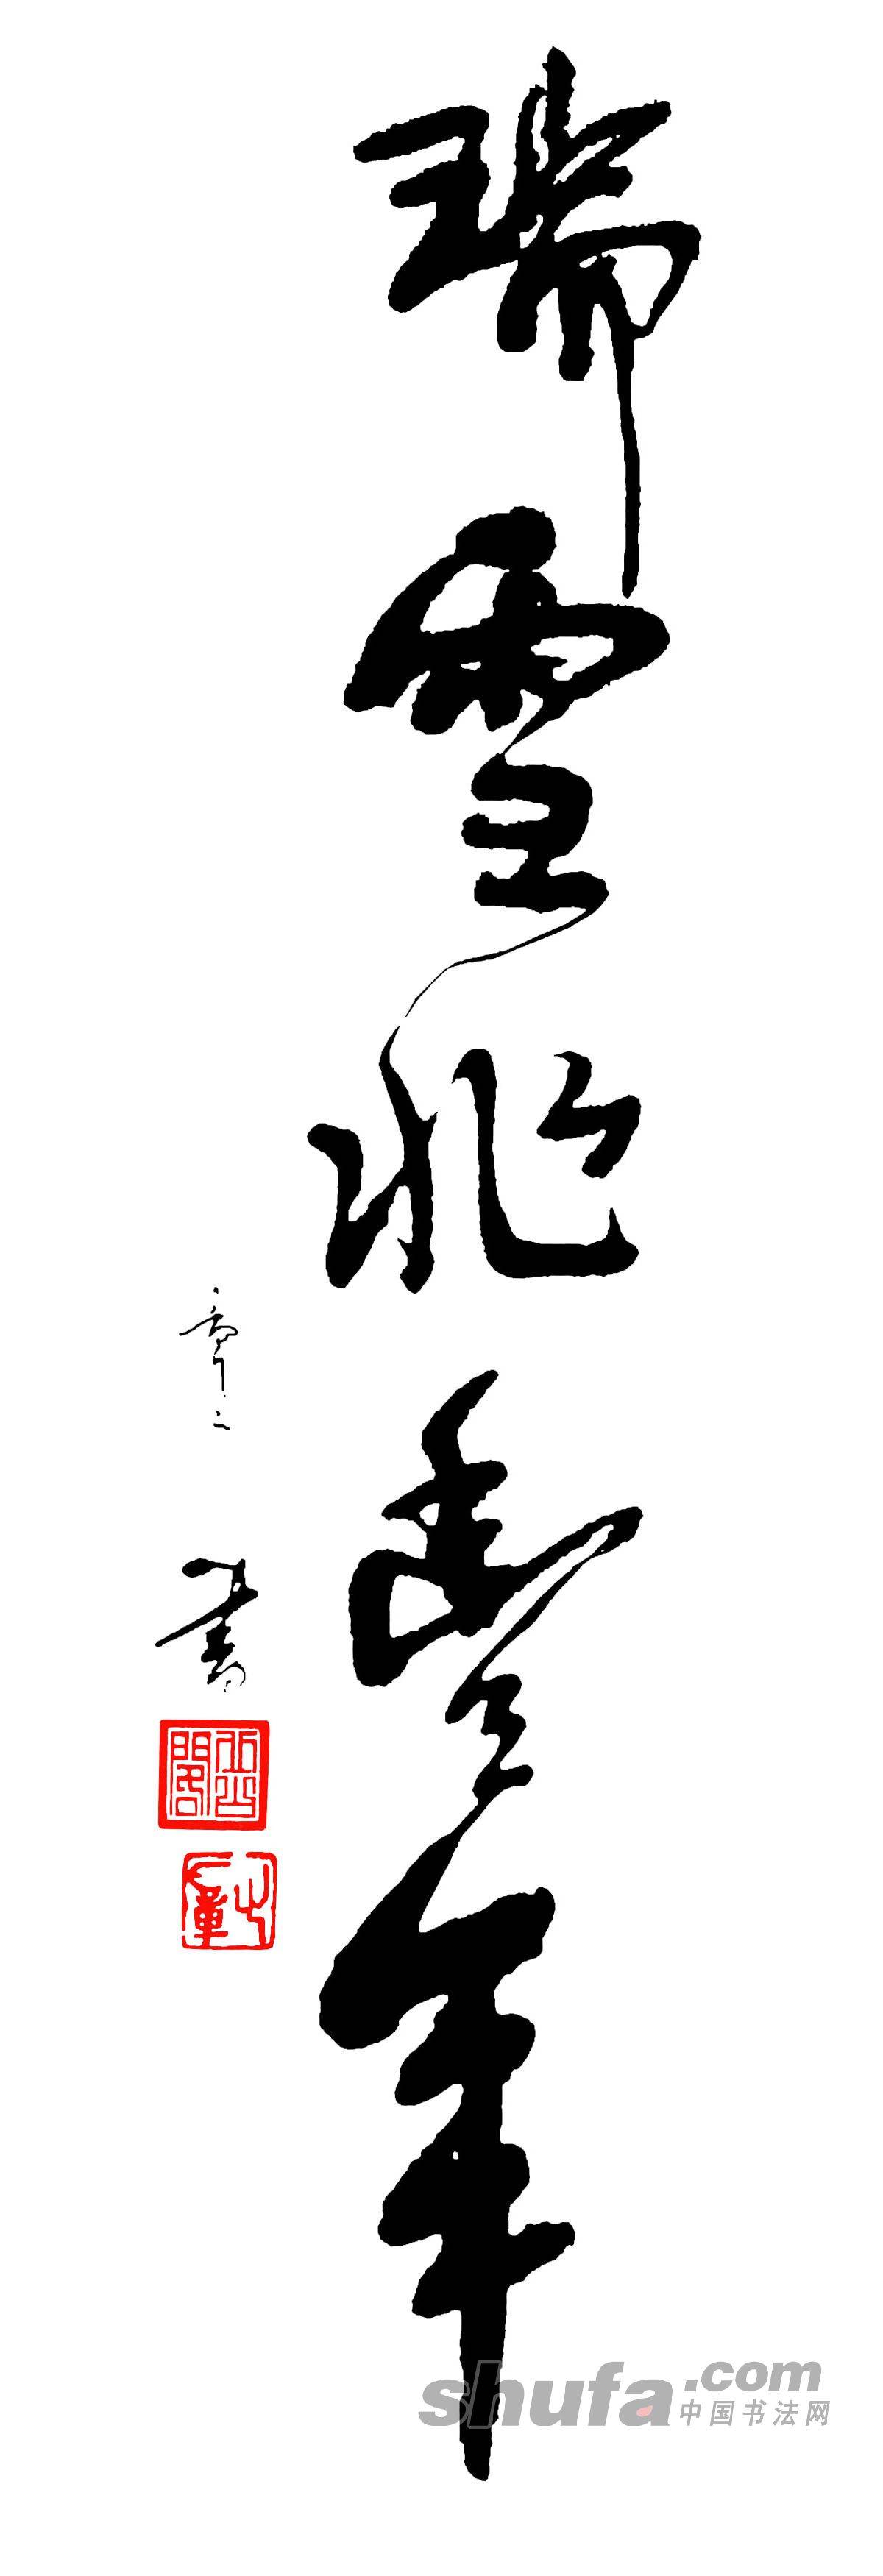 瑞雪兆丰年
章二 书
shufa.com
中国书法网